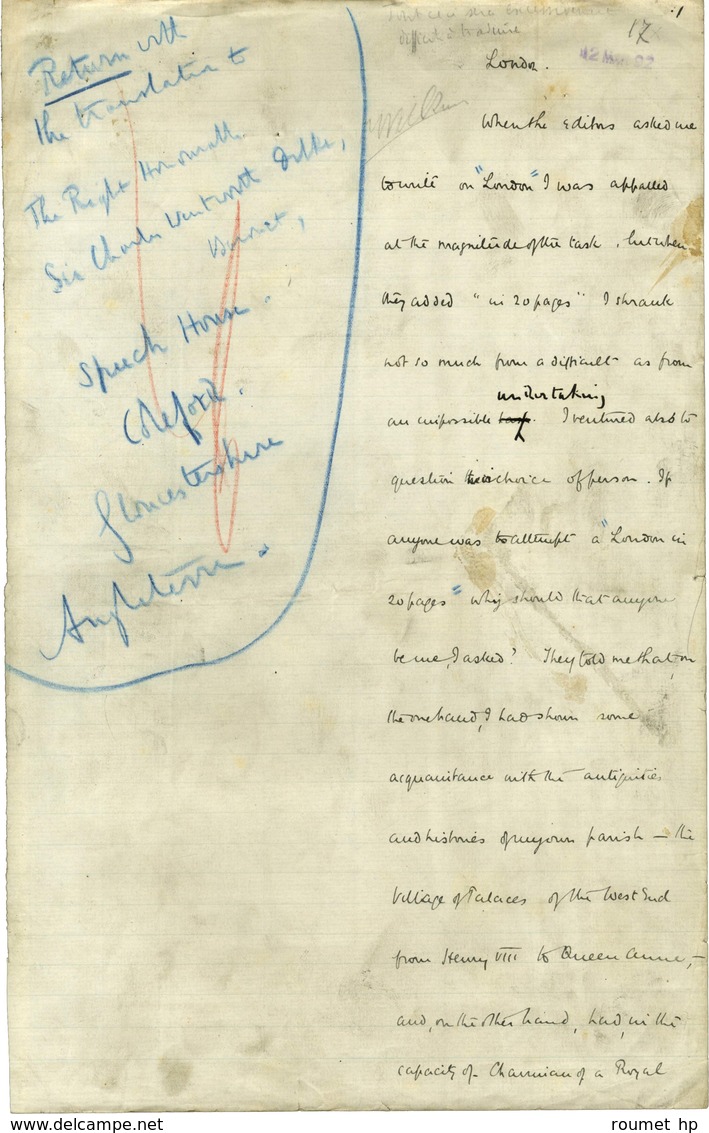 Return with
the translation to
The Right Honourable
Sir Charles Wentworth Dilke,
Baronet,
Speech House.
Coleford.
Gloucestershire
Angleterre.
difficile à traduire
17
1
London.
When the Editors asked me
to write on "London" I was appalled
at the magnitude of the task, but when
they added "in 20 pages" I shrank
not so much from a difficult as from
undertaking
an impossible task. I ventured also to
question their choice of person. If
anyone was to attempt a "London in
20 pages" why should that anyone
be me, I asked? They told me that, on
the one hand, I had shown some
acquaintance with the antiquities
and histories of my own parish — the
Village of Palaces of the West End
from Henry VIII to Queen Anne, —
and, on the other hand, had, in the
capacity of Chairman of a Royal
roumet hp